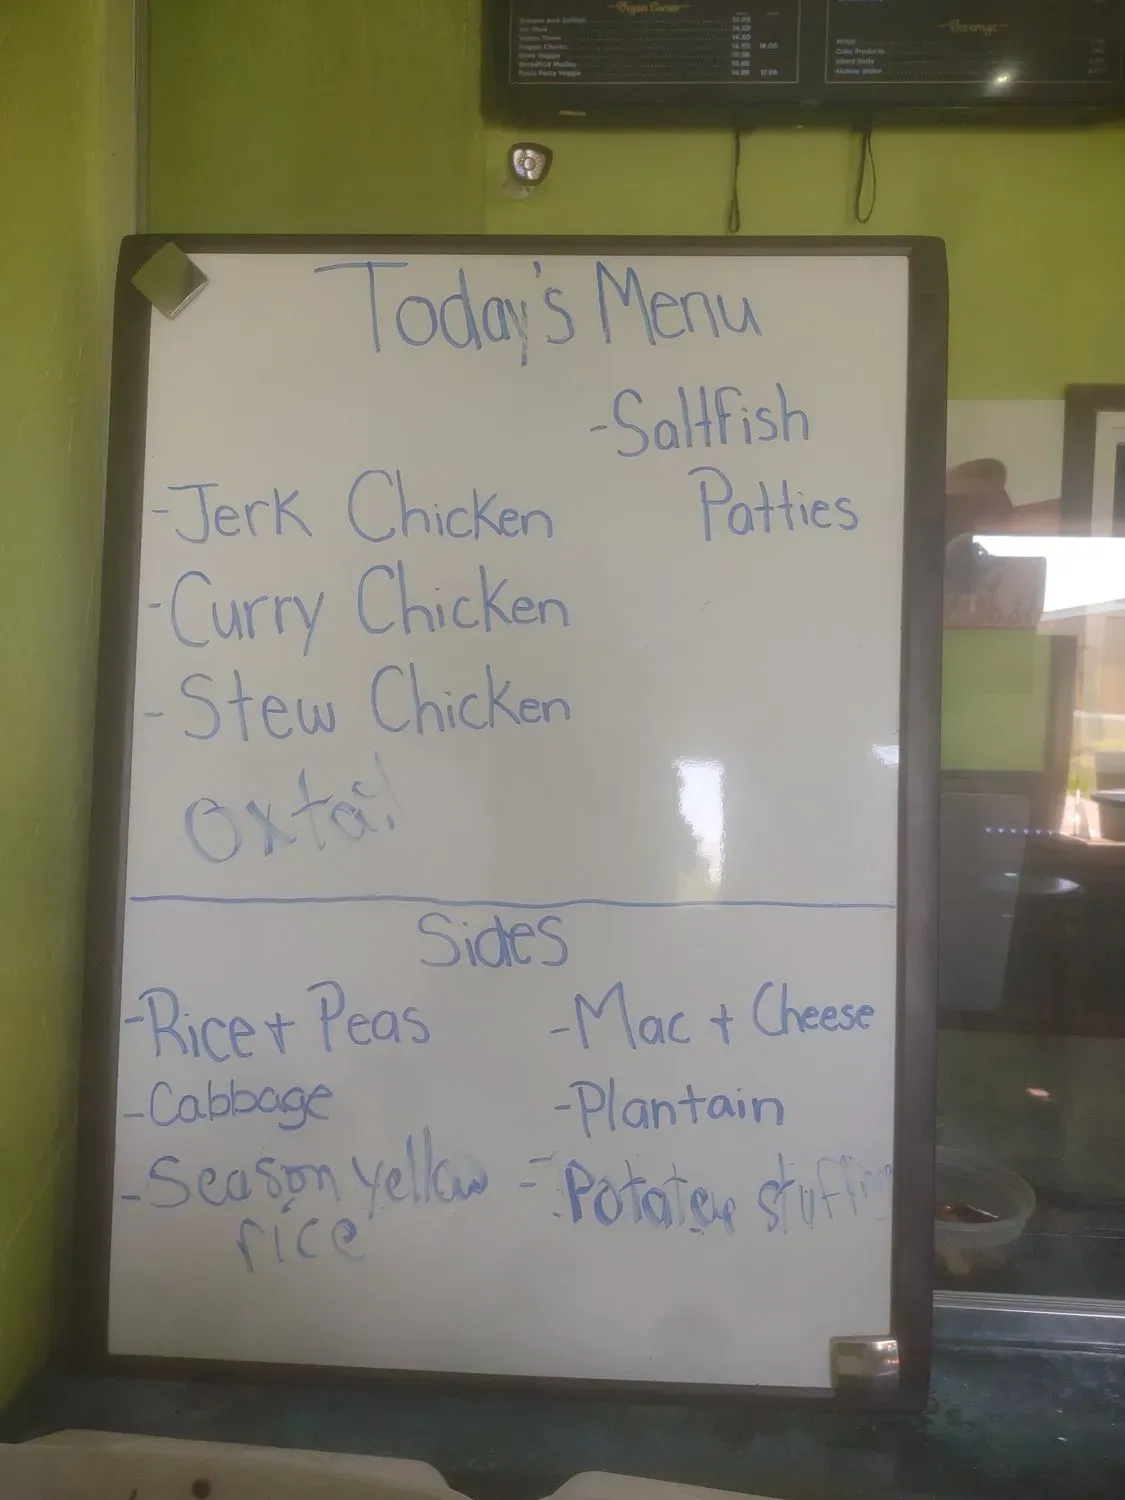 Vegan Corner
Beverage
Today's Menu
-Saltfish
Patties
-Jerk Chicken
-Curry Chicken
-Stew Chicken
Oxtail
Sides
-Rice + Peas
-Cabbage
-Season yellow
rice
-Mac + Cheese
-Plantain
-Potatoe stuffing